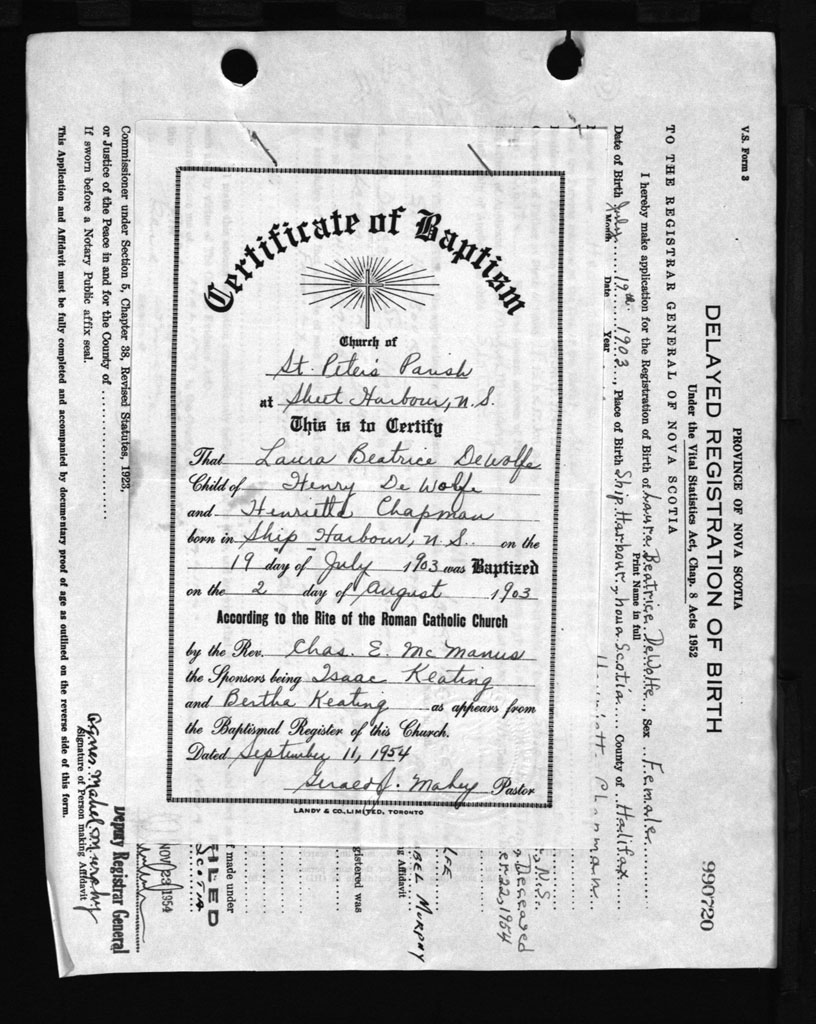 Certificate of Baptism
Church of
St. Peter's Parish
at Sheet Harbour, N.S.
This is to Certify
That Laura Beatrice DeWolfe
Child of Henry De Wolfe
and Henrietta Chapman
born in Ship Harbour, N.S. on the
19 day of July 1903 was Baptized
on the 2 day of August 1903
According to the Rite of the Roman Catholic Church
by the Rev. Chas. E. McManus
the Sponsors being Isaac Keating
and Bertha Keating as appears from
the Baptismal Register of this Church.
Dated September 11, 1954
Gerald J. Mahey Pastor
LANDY & CO., LIMITED, TORONTO
V.S. Form 3
PROVINCE OF NOVA SCOTIA
DELAYED REGISTRATION OF BIRTH
990720
Under the Vital Statistics Act, Chap. 8 Acts 1952
TO THE REGISTRAR GENERAL OF NOVA SCOTIA
I hereby make application for the Registration of Birth of Laura Beatrice DeWolfe, Sex Female
Print Name in full
Date of Birth July 19th 1903, Place of Birth Ship Harbour, Nova Scotia County of Halifax
Month Date Year
Chapman
N.S.
Deceased
22, 1954
LFE
BEL MURPHY
g Affidavit
gistered was
f made under
SCOTIA
NOV 23 1954
Deputy Registrar General
Commissioner under Section 5, Chapter 38, Revised Statutes, 1923,
or Justice of the Peace in and for the County of
If sworn before a Notary Public affix seal.
Agnes Mabel Murphy
Signature of Person making Affidavit
This Application and Affidavit must be fully completed and accompanied by documentary proof of age as outlined on the reverse side of this form.